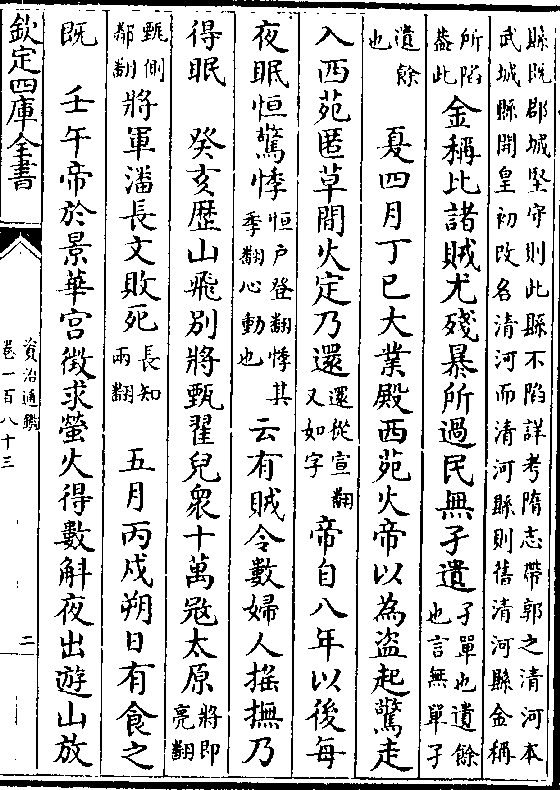 縣既郡城堅守則此縣不陷詳考隋志帶郭之清河本
武城縣開皇初改名清河而清河縣則舊清河縣金稱
所陷
蓋此
金稱比諸賊尤殘暴所過民無孑遺
孑單也遺餘
也言無單孑
遺餘
也
夏四月丁巳大業殿西苑火帝以為盗起驚走
入西苑匿草間火定乃還
還從宣翻
又如字
帝自八年以後每
夜眠恒驚悸
恒户登翻悸其
季翻心動也
云有賊令數婦人揺撫乃
得眠 癸亥歴山飛别將甄翟兒衆十萬冦太原
將即
亮翻
甄側
鄰翻
將軍潘長文敗死
長知
兩翻
五月丙戍朔日有食之
既 壬午帝於景華宫徴求螢火得數斛夜出遊山放
欽定四庫全書
資治通鑑
卷一百八十三
二